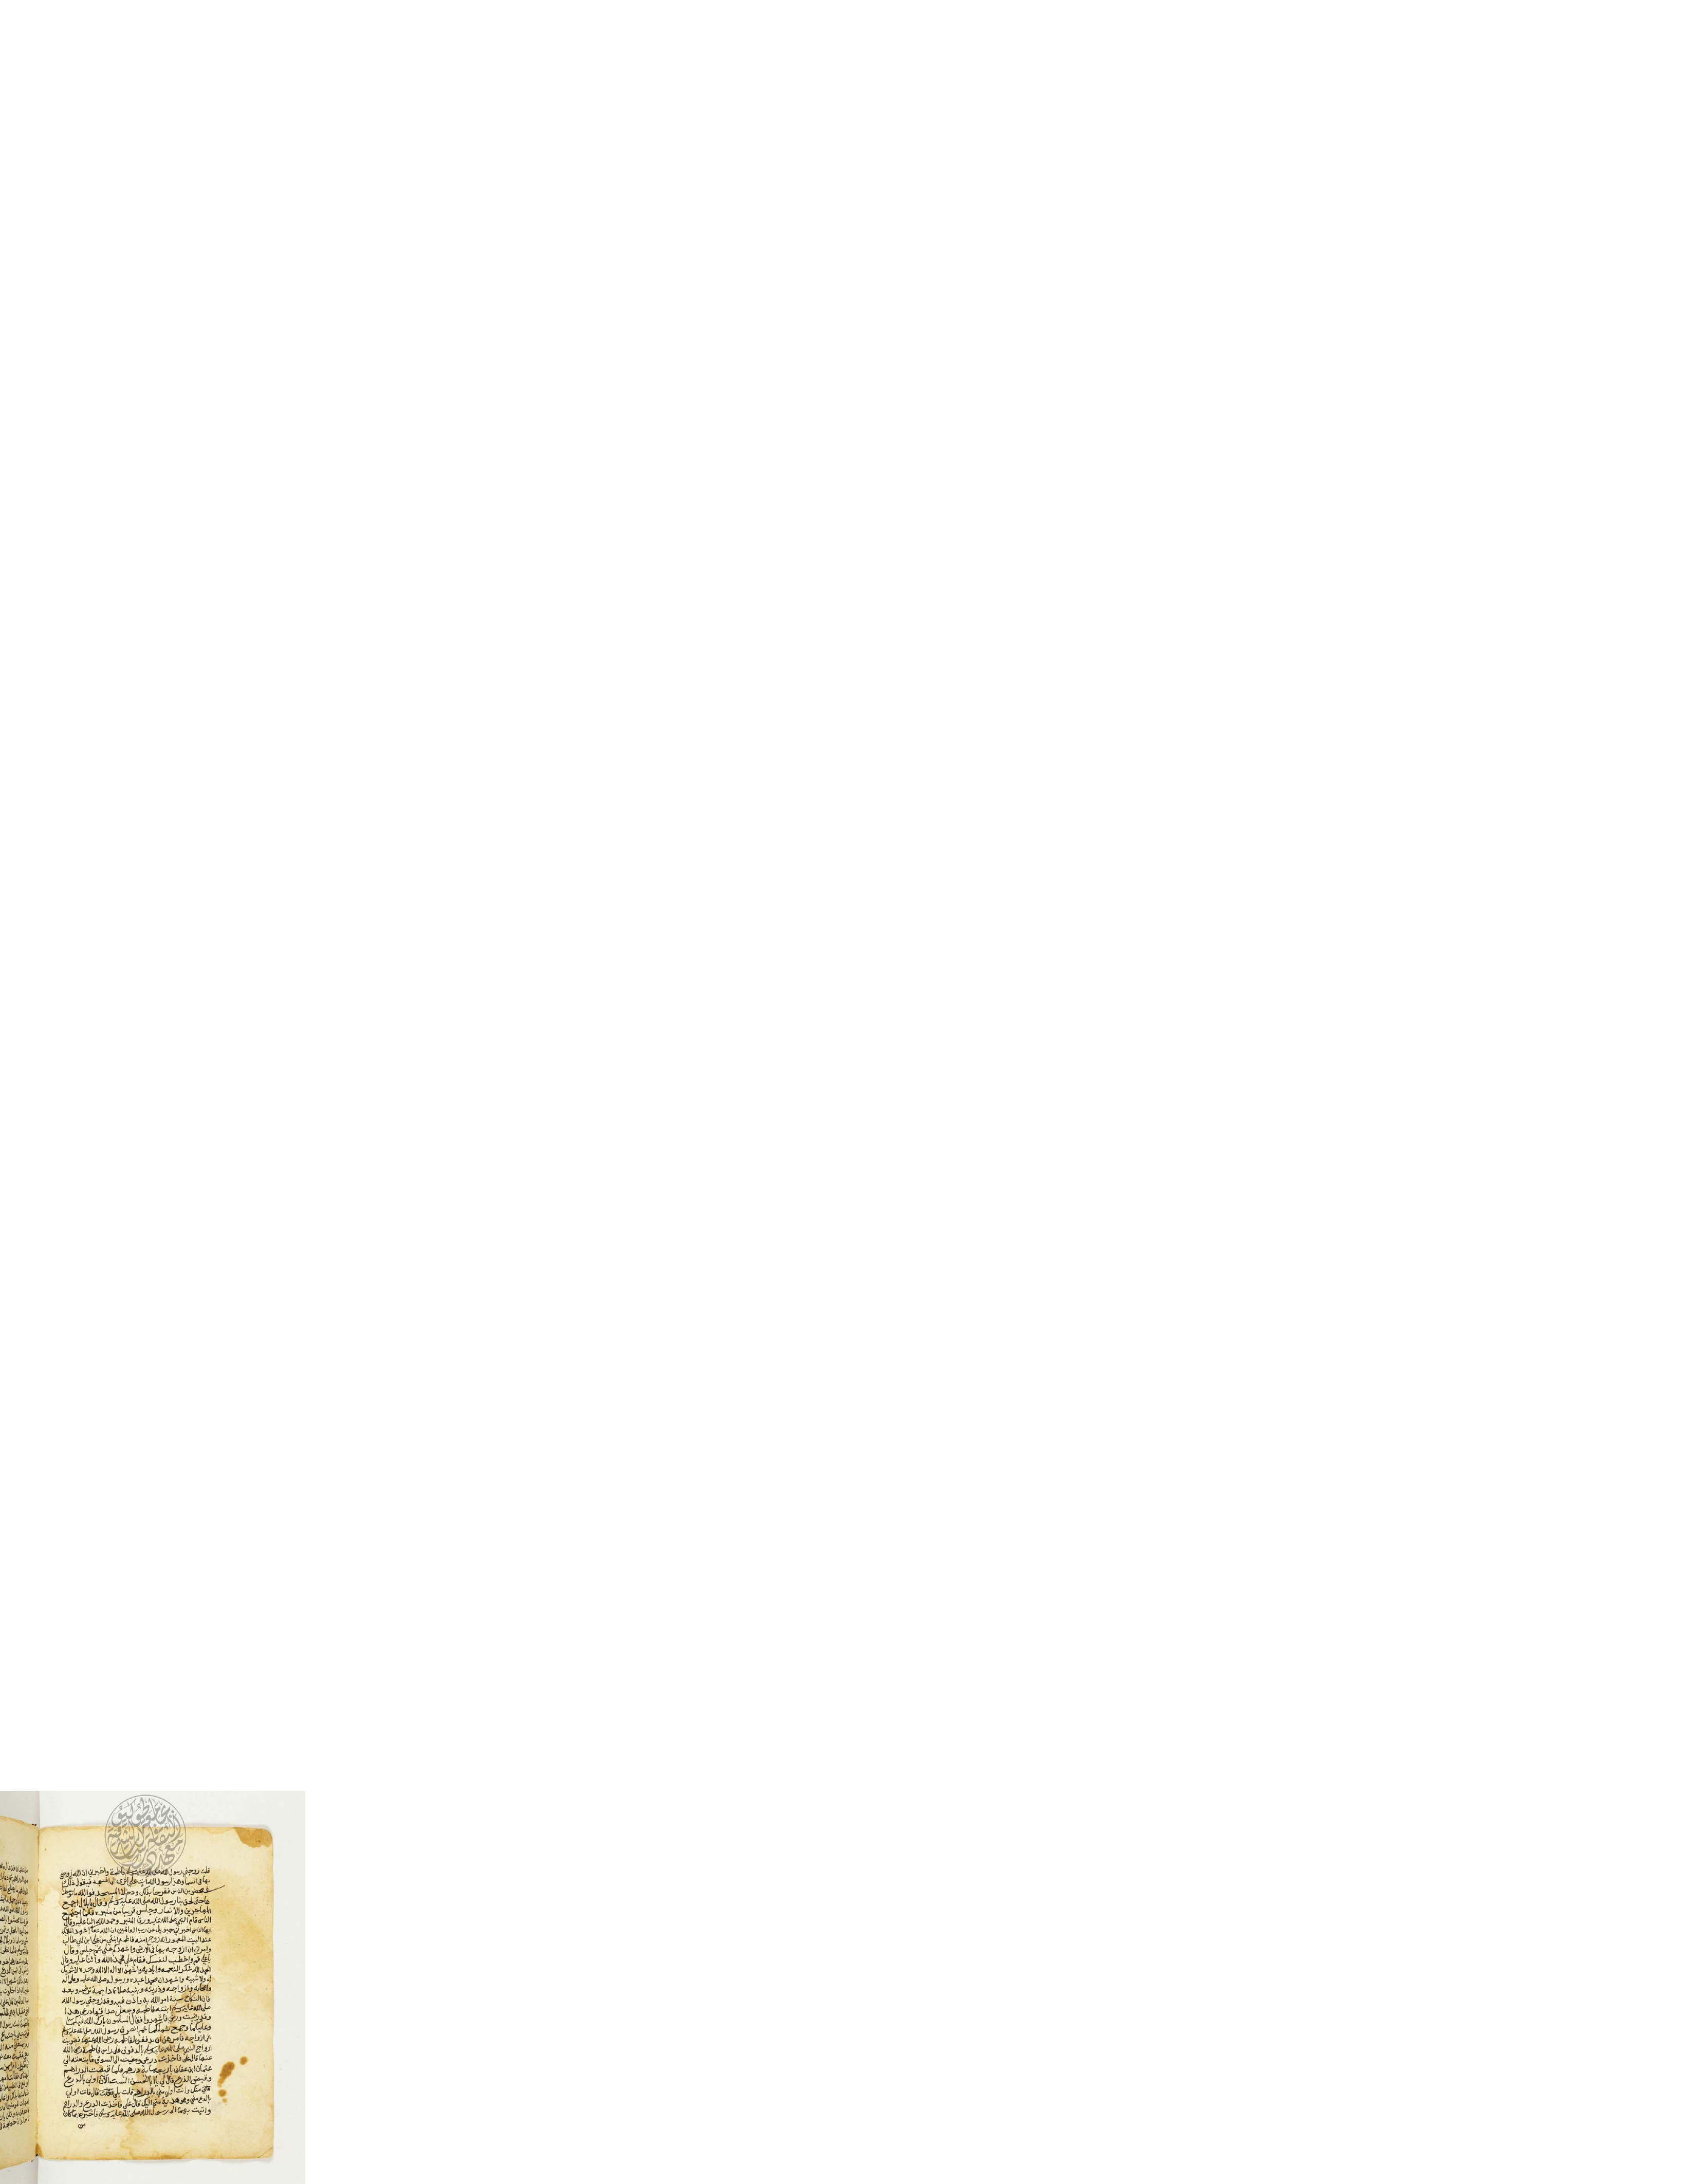 قلت زوجني رسول الله صلى الله عليه وسلم فاطمة واخبرني ان الله زوجني
بها في السما وهذا رسول الله
من الناس ففرحا بذلك ودخلا المسجد فوالله ما
حتى لحق بنا رسول الله صلى الله عليه وسلم وقال يا بلال اجمع
المهاجرين والانصار وجلس قريبا من منبره فلما اجتمع
الناس قام النبي صلى الله عليه وسلم المنبر وحمد الله واثنا عليه وقال
ايها الناس اخبرني جبريل عن رب العالمين ان الله
عند البيت المعمور انه زوج امته فاطمة ابنتي من علي ابن ابي طالب
وامرني ان ازوجه بها في الارض واشهدكم على ثم جلس وقال
يا علي قم واخطب لنفسك فقام علي فحمد الله واثنا عليه وقال
الحمد لله شكرا لنعمه واياديه واشهد الا اله الا الله وحده لا شريك
له ولا شبيه واشهد ان محمدا عبده ورسوله صلى الله عليه وعلى اله
واصحابه وازواجه وذريته وبنيه صلاة دايمة ترضيه وبعد
فان النكاح سنة امر الله به واذن فيه وقد زوجني رسول الله
صلى الله عليه وسلم ابنته فاطمة وجعل صداقها درعي هذا
وقد رضيت ورضي فاشهدوا فقال المسلمون بارك الله فيكما
وعليكما وجمع شملكما ثم انصرف رسول الله صلى الله عليه وسلم
الى ازواجه فامرهن ان يدففن لفاطمة رضي الله عنها فضربت
ازواج النبي صلى الله عليه وسلم بالدفوف على راس فاطمة رضي الله
عنها قال علي فاخذت درعي ومضيت الى السوق فابتعته الى
عثمان ابن عفان باربعماية درهم فلما قبضت الدراهم
وقبض الدرع قال لي يا ابا الحسن الست الآن اولى بالدرع
منك وانت اولى مني بالدراهم قلت بلى قال فانت اولى
بالدرع مني وهو هدية مني اليك قال علي فاخذت الدرع والدراهم
واتيت بهما الى رسول الله صلى الله عليه وسلم فاخبرته بما كان
من